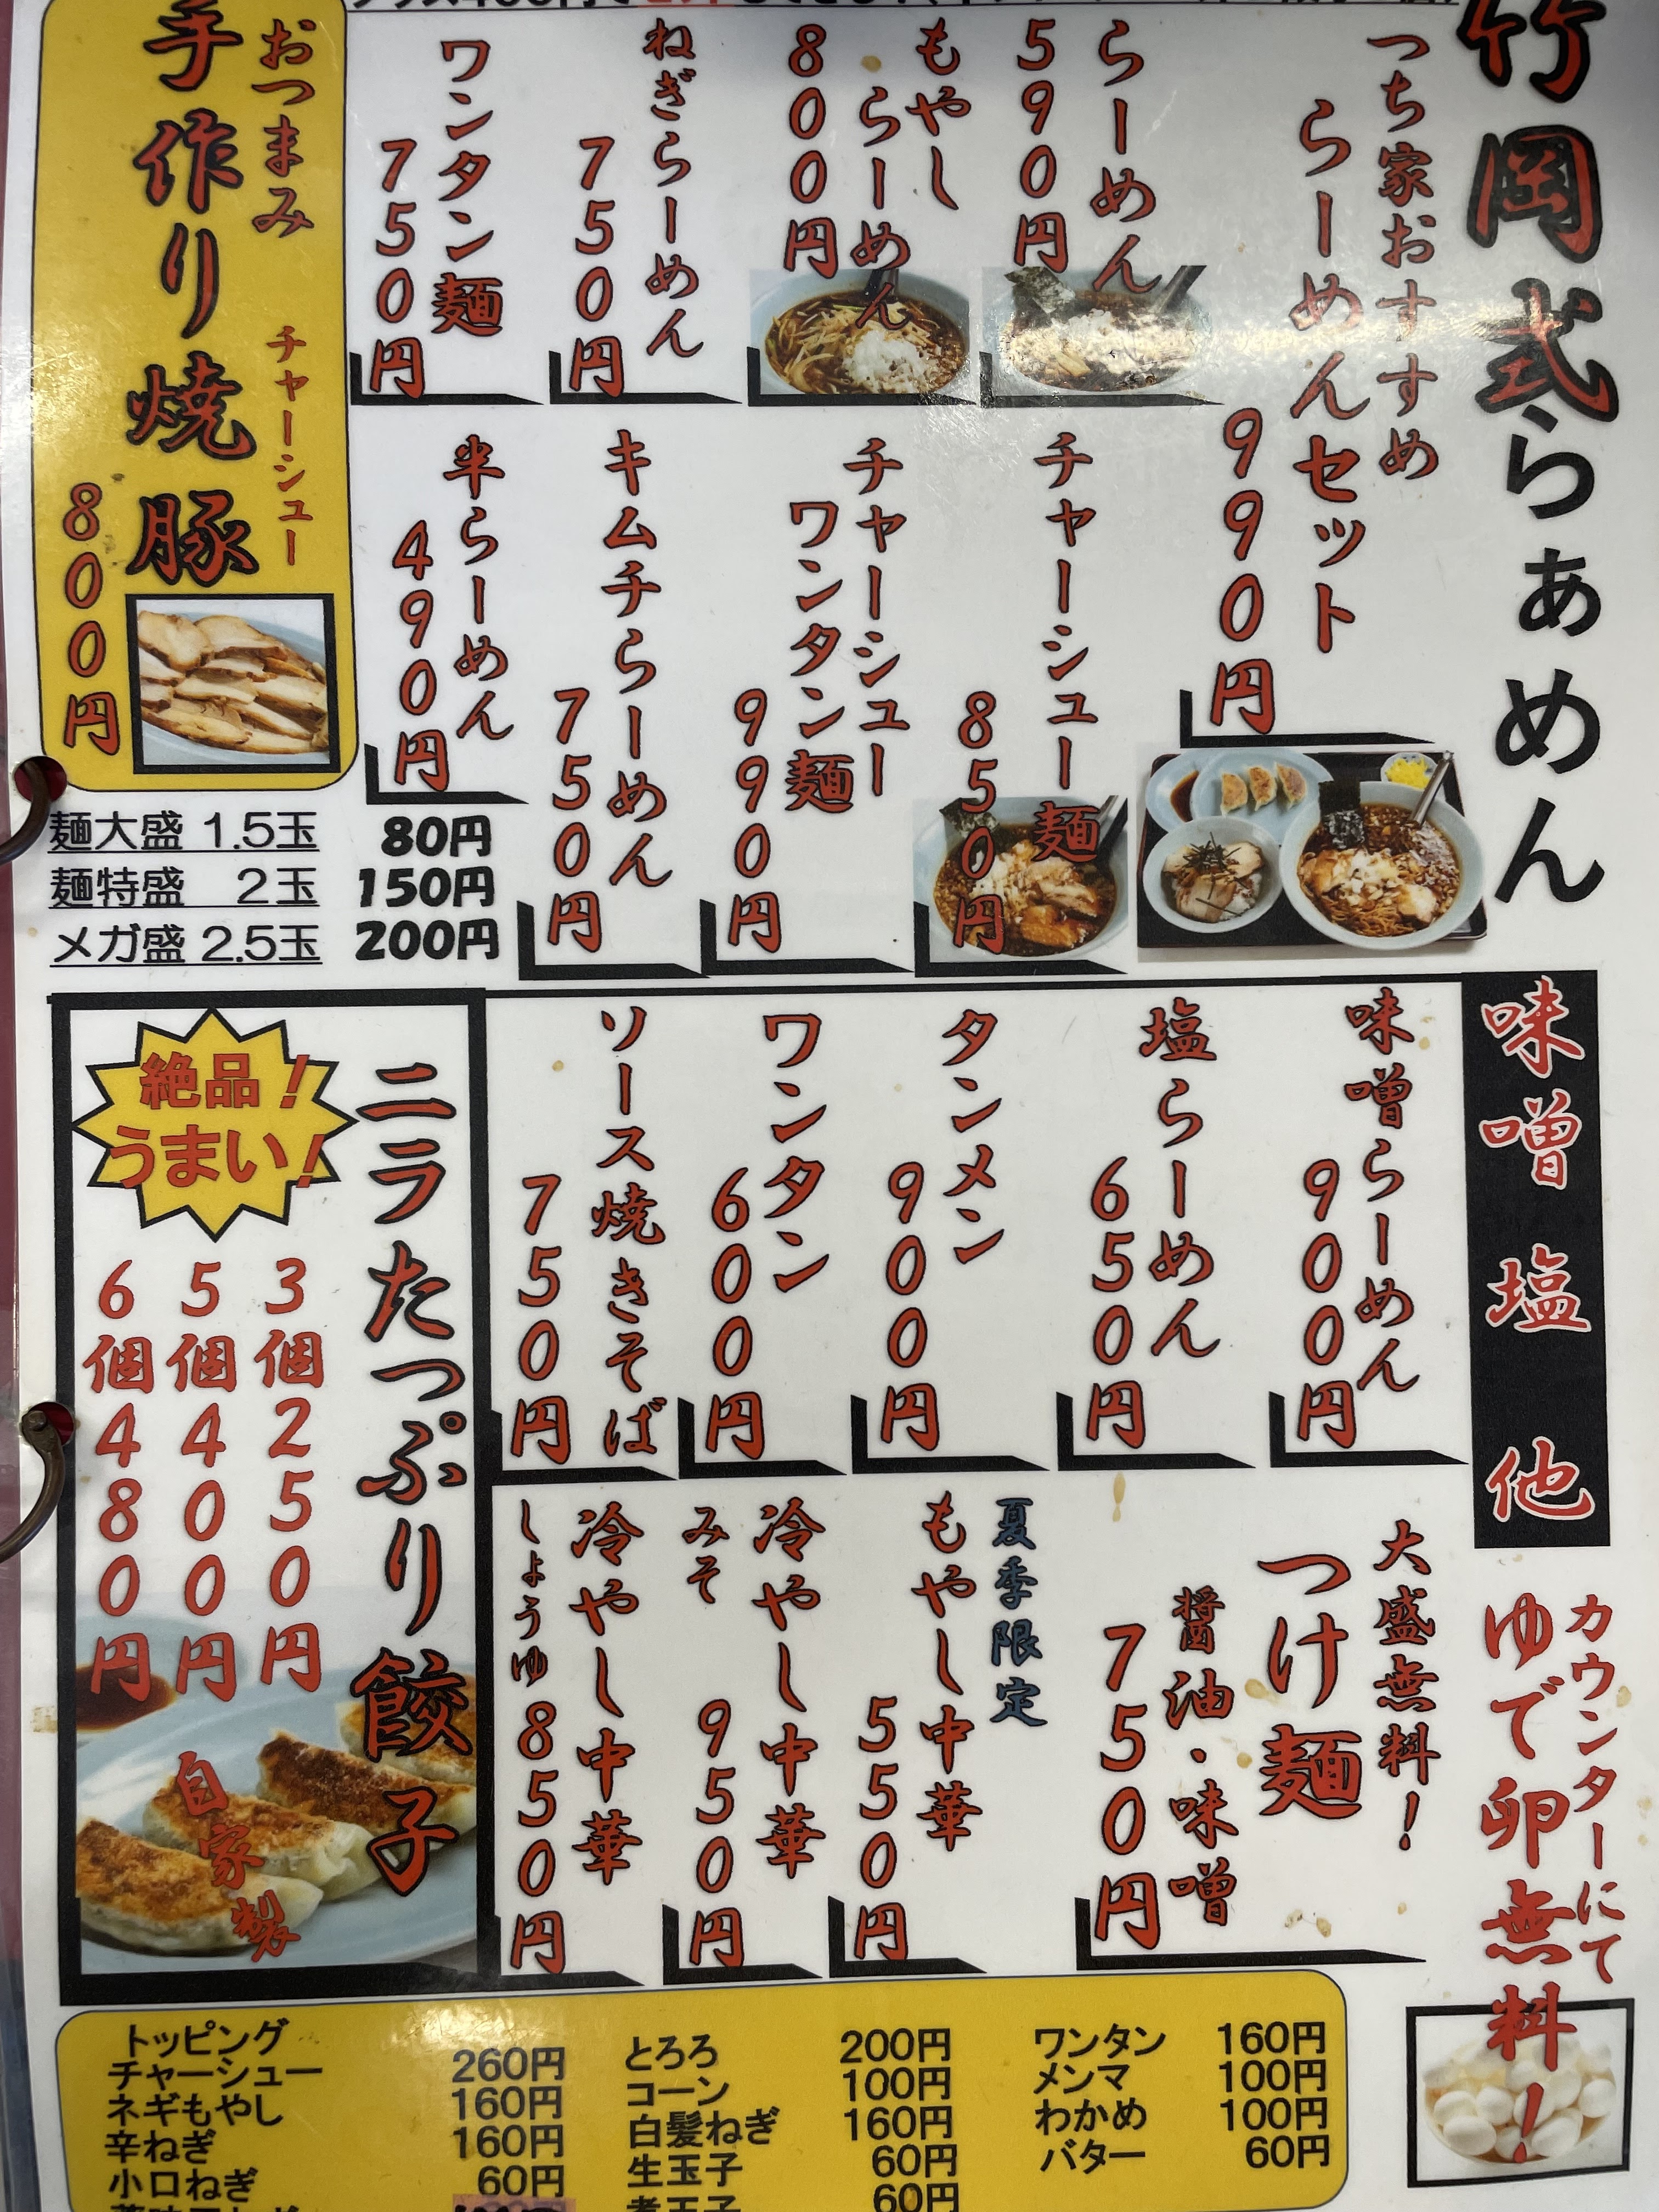 竹岡式らぁめん
つち家おすすめ
らーめんセット
990円
らーめん
590円
もやし
らーめん
800円
ねぎらーめん
750円
ワンタン麺
750円
チャーシュー麺
850円
チャーシュー
ワンタン麺
990円
キムチらーめん
750円
半らーめん
490円
おつまみ
チャーシュー
手作り焼豚
800円
麺大盛 1.5玉 80円
麺特盛 2玉 150円
メガ盛 2.5玉 200円
味噌 塩 他
味噌らーめん
900円
塩らーめん
650円
タンメン
900円
ワンタン
600円
ソース焼きそば
750円
大盛無料!
つけ麺
醤油・味噌
750円
夏季限定
もやし中華
550円
冷やし中華
みそ
950円
冷やし中華
しょうゆ850円
ニラたっぷり餃子
絶品!
うまい!
3個250円
5個400円
6個480円
自家製
カウンターにて
ゆで卵無料!
トッピング
チャーシュー 260円
ネギもやし 160円
辛ねぎ 160円
小口ねぎ 60円
とろろ 200円
コーン 100円
白髪ねぎ 160円
生玉子 60円
煮玉子 60円
ワンタン 160円
メンマ 100円
わかめ 100円
バター 60円